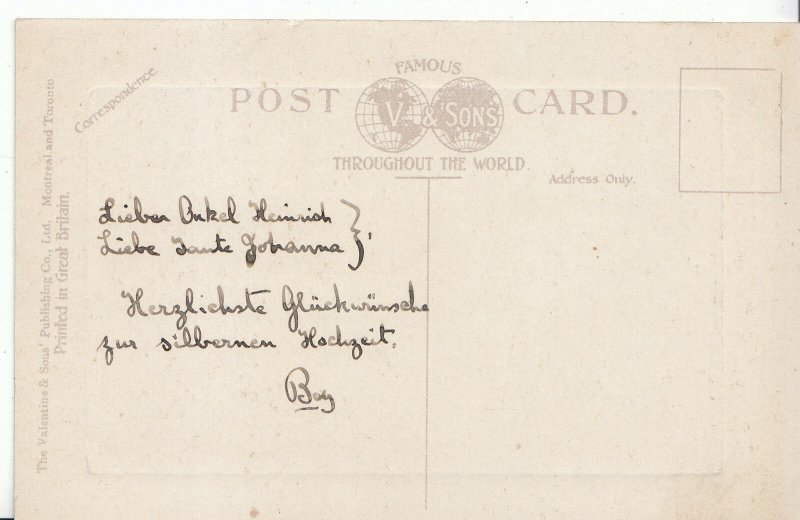 FAMOUS
POST CARD.
V. & SONS
THROUGHOUT THE WORLD.
Correspondence.
Address Only.
The Valentine & Sons' Publishing Co., Ltd. Montreal and Toronto
Printed in Great Britain.
Lieber Onkel Heinrich }
Liebe Tante Johanna } '
Herzlichste Glückwünsche
zur silbernen Hochzeit.
Boy